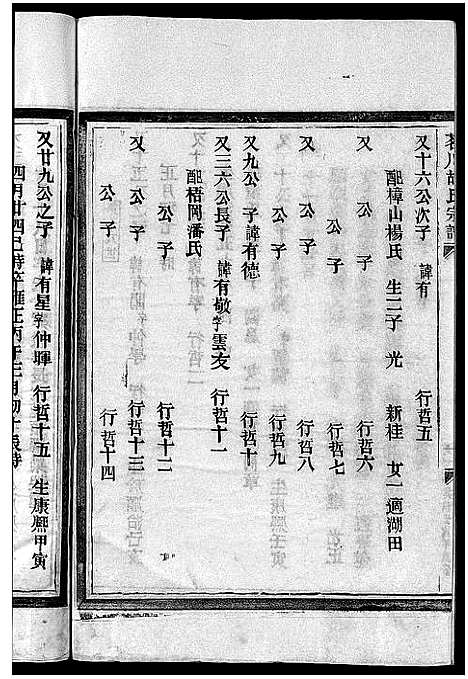 又十六公次子 諱有 行哲五
配樟山楊氏 生二子 光 新桂 女一適湖田
又 公 子 行哲六
公 子 行哲七
又 公 子 行哲八
公 子 行哲九
又九公 子諱有德 行哲十
又三六公長子 諱有敬字雲友 行哲十一
配梧岡潘氏
公 子 行哲十二
又 公 子 行哲十三
公 子 行哲十四
又廿九公之子 諱有星字仲暉 行哲十五 生康熙甲寅
四月廿四巳時卒雍正丙午三月初十辰時